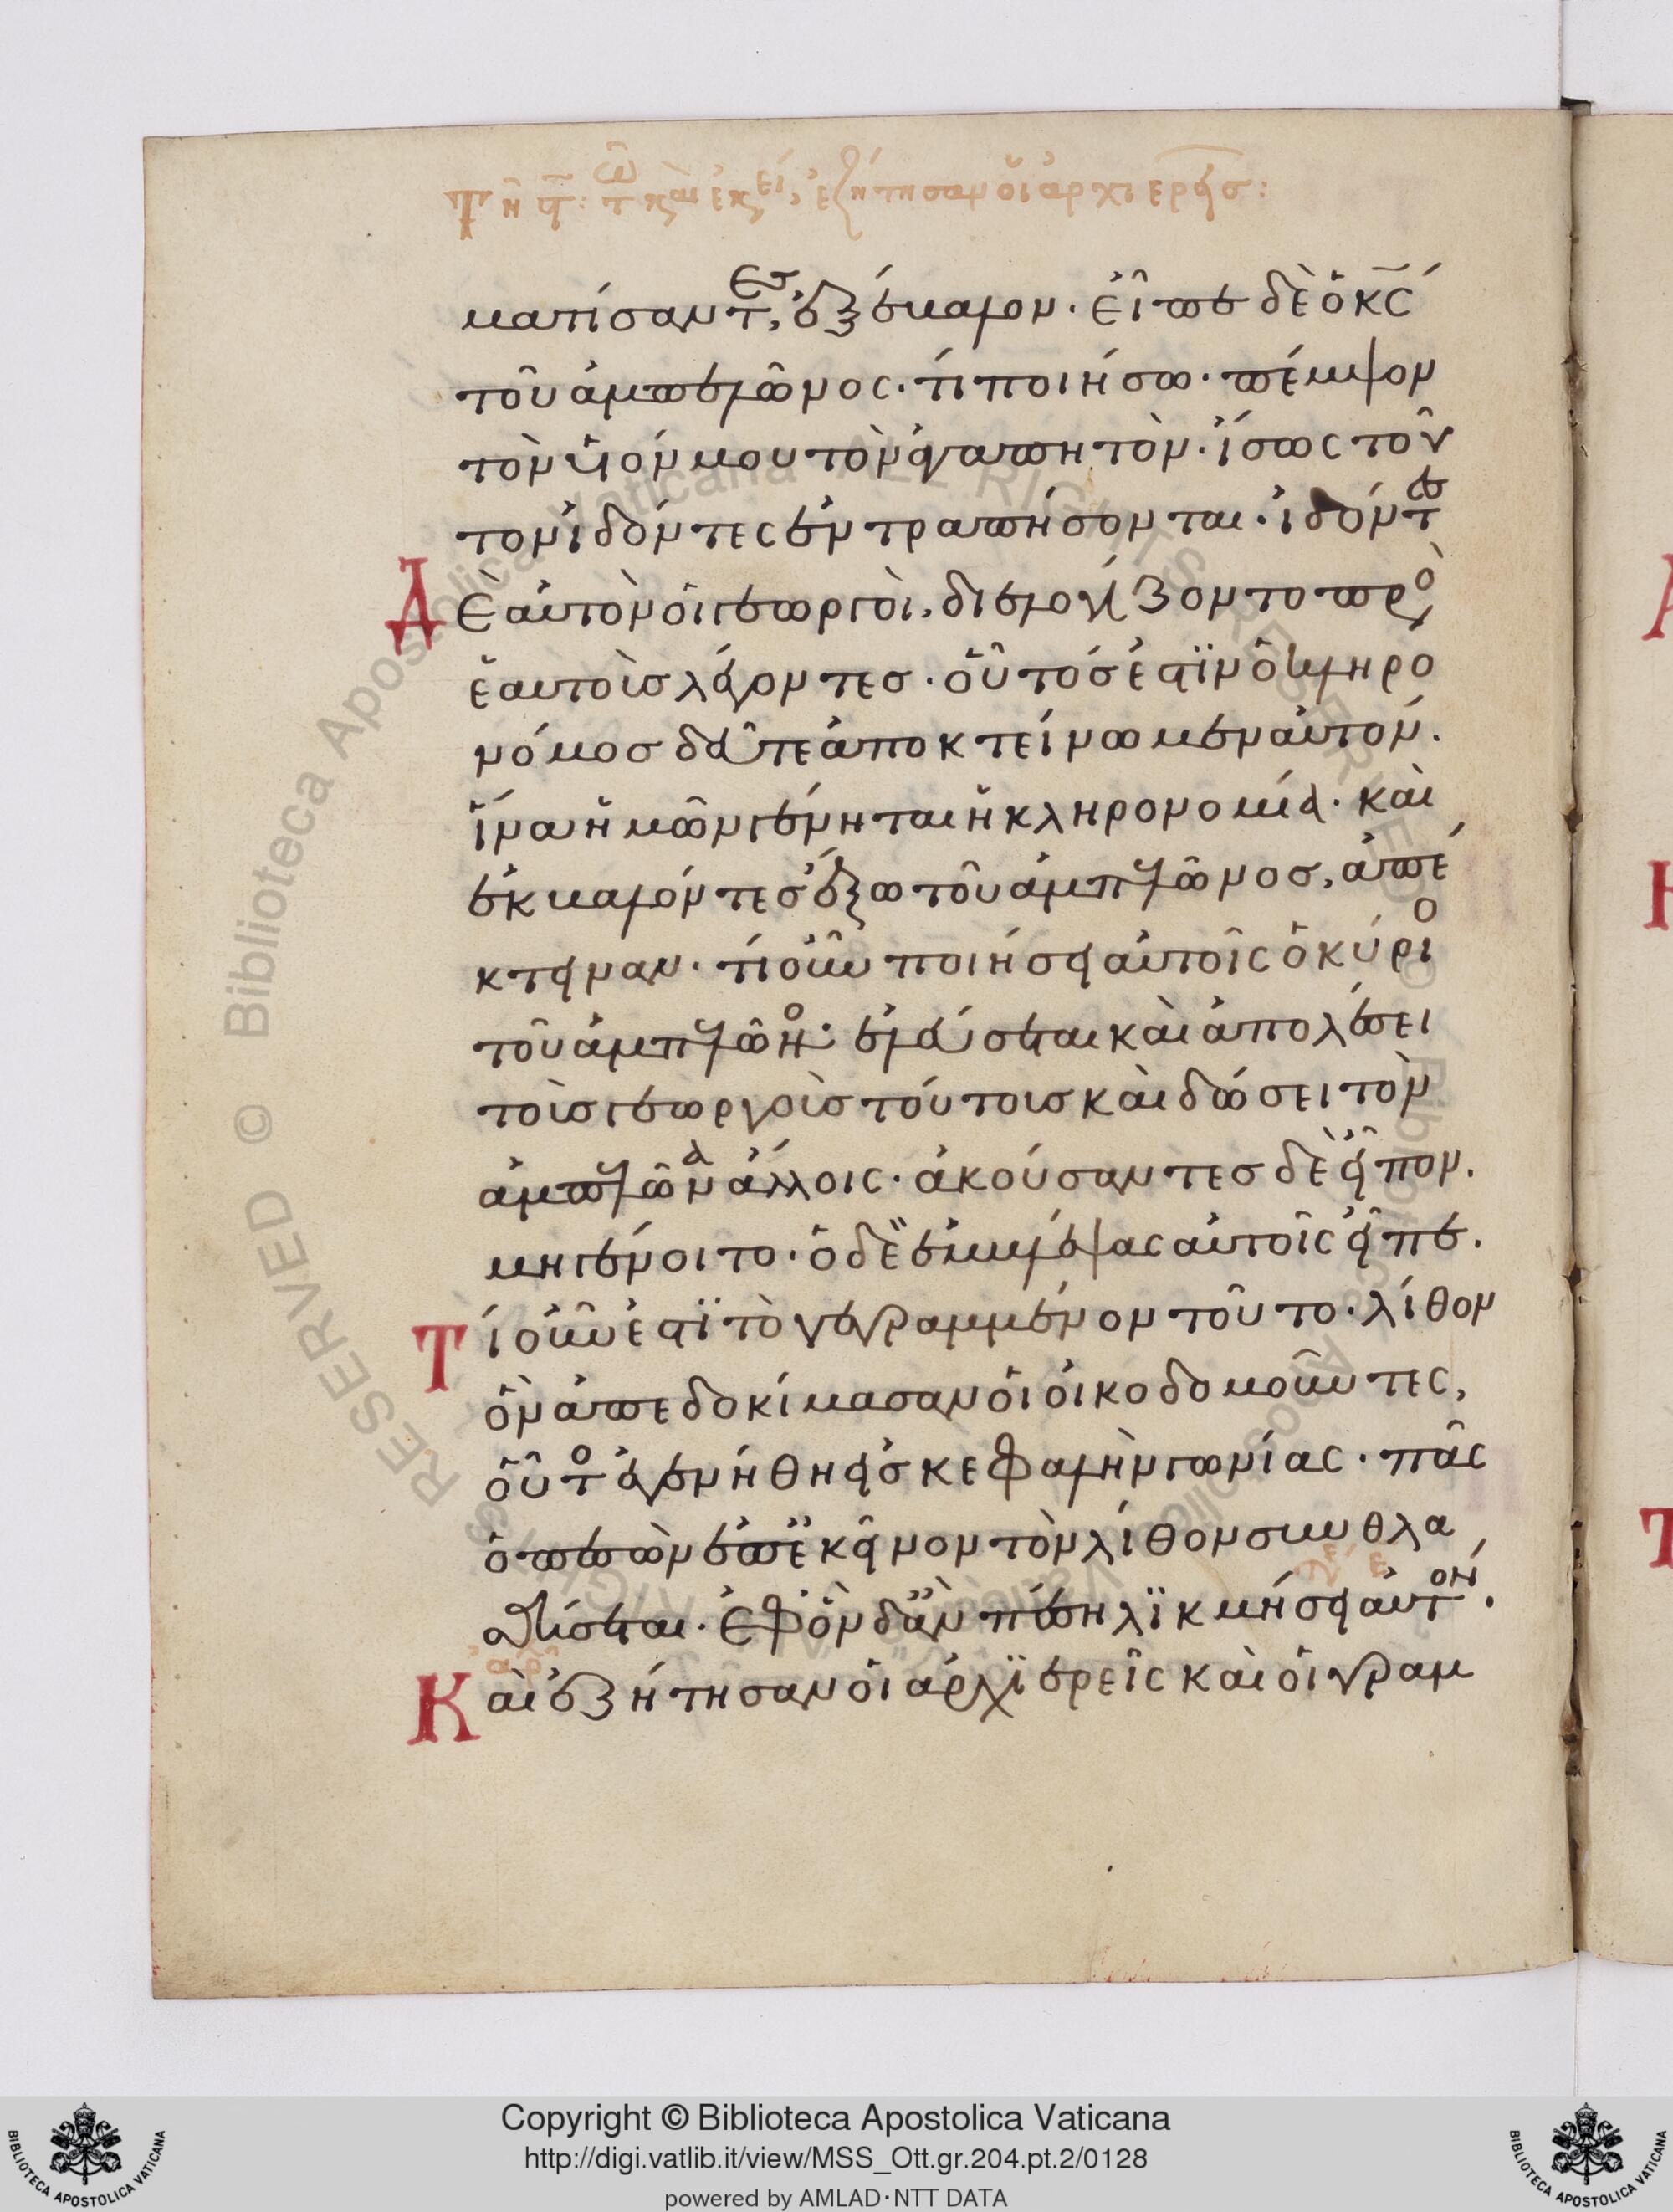 ματίσαντες, ἐξέβαλον. εἶπε δὲ ὁ κς
τοῦ ἀμπελῶνος. τί ποιήσω. πέμψω
τὸν υἱόν μου τὸν ἀγαπητὸν. ἴσως τοῦ
τον ἰδόντες ἐντραπήσονται. ἰδόντες
Δὲ αὐτὸν οἱ γεωργοὶ, διελογίζοντο πρὸς
ἑαυτοὺς λέγοντες. οὗτός ἐστιν ὁ κληρο
νόμος δεῦτε ἀποκτείνωμεν αὐτόν.
ἵνα ἡμῶν γένηται ἡ κληρονομία. καὶ
ἐκβαλόντες ἔξω τοῦ ἀμπελῶνος, ἀπέ
κτειναν. τί οὖν ποιήσει αὐτοῖς ὁ κύριος
τοῦ ἀμπελῶνος. ἐλεύσεται καὶ ἀπολέσει
τοὺς γεωργοὺς τούτους καὶ δώσει τὸν
ἀμπελῶνα ἄλλοις. ἀκούσαντες δὲ εἶπον.
μὴ γένοιτο. ὁ δὲ ἐμβλέψας αὐτοῖς εἶπε.
Τί οὖν ἐστὶ τὸ γεγραμμένον τοῦτο. λίθον
ὃν ἀπεδοκίμασαν οἱ οἰκοδομοῦντες,
οὗτος ἐγενήθη εἰς κεφαλὴν γωνίας. πᾶς
ὁ πεσὼν ἐπ' ἐκεῖνον τὸν λίθον συνθλα
σθήσεται. ἐφ' ὃν δ' ἂν πέσῃ λικμήσει αὐτόν.
Καὶ ἐζήτησαν οἱ ἀρχιερεῖς καὶ οἱ γραμ
Copyright © Biblioteca Apostolica Vaticana
http://digi.vatlib.it/view/MSS_Ott.gr.204.pt.2/0128
powered by AMLAD·NTT DATA
BIBLIOTECA APOSTOLICA VATICANA
BIBLIOTECA APOSTOLICA VATICANA